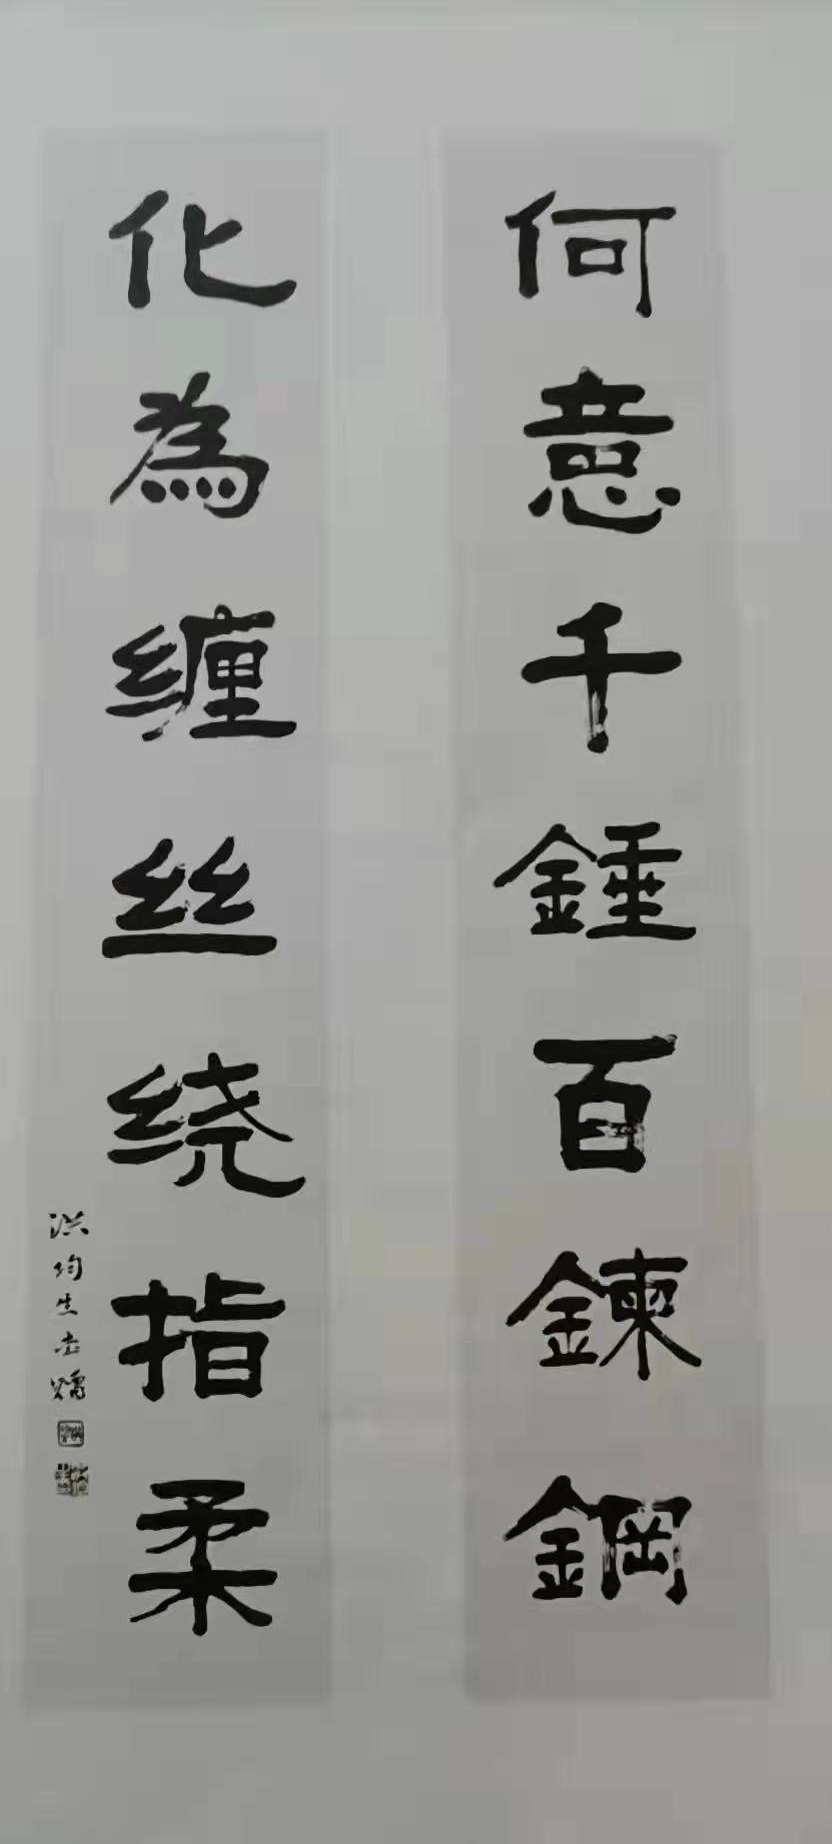 何意千錘百鍊鋼
化為缠丝绕指柔
洪均生书